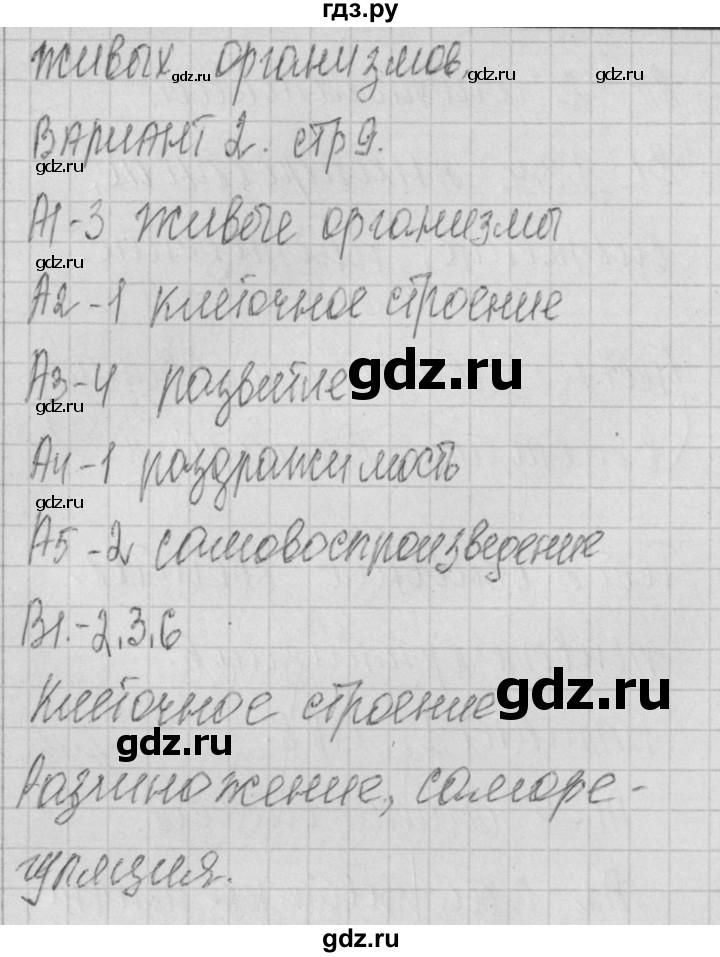 гдз.ру
живых организмов.
gdz.ru gdz.ru gdz.ru
Вариант 2. стр 9.
gdz.ru
А1-3 живые организмы
gdz.ru
А2-1 клеточное строение
А3-4 развитие gdz.ru
gdz.ru
А4-1 раздражимость
gdz.ru
А5-2 самовоспроизведение
В1.-2,3,6
Клеточное строение gdz.ru
gdz.ru
Размножение, саморе-
гуляция.
gdz.ru